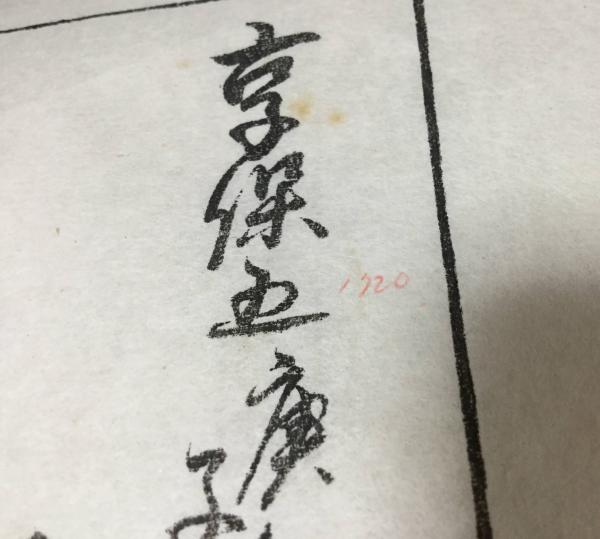 享保五庚
子
1720